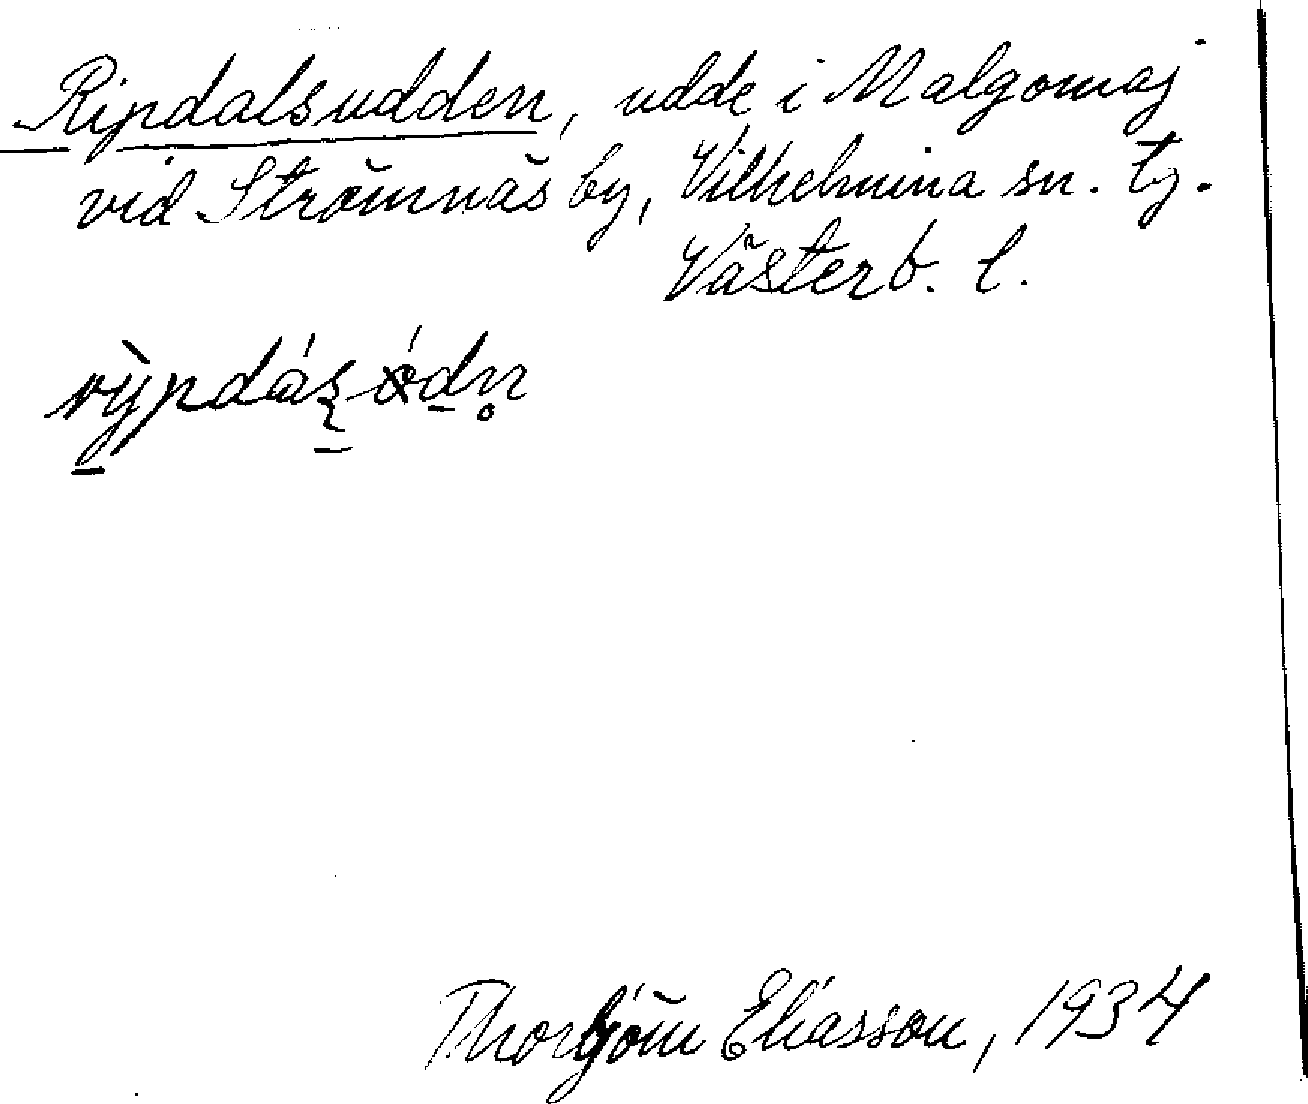 Ripdalsudden, udde i Malgomaj
vid Strömnäs by, Vilhelmina sn. tg.
Västerb. l.
Thorbjörn Eliasson, 1934